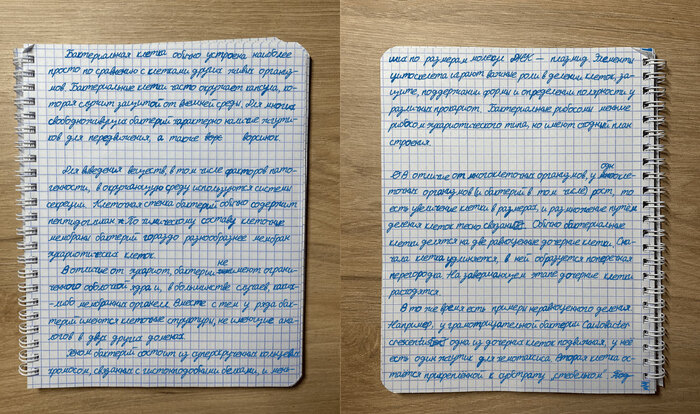 Бактериальная клетка обычно устроена наиболее
просто по сравнению с клетками других живых организ-
мов. Бактериальные клетки часто окружает капсула, ко-
торая служит защитой от внешней среды. Для многих
свободноживущих бактерий характерно наличие жгути-
ков для передвижения, а также ворс ворсинок.
Для введения веществ, в том числе факторов пато-
генности, в окружающую среду используются системы
секреции. Клеточная стенка бактерий обычно содержит
пептидогликан. По химическому составу клеточные
мембраны бактерий гораздо разнообразнее мембран
эукариотических клеток.
не
В отличие от эукариот, бактерии имеют ограни-
ченного оболочкой ядра и, в большинстве случаев, каких-
либо мембранных органелл. Вместе с тем у ряда бак-
терий имеются клеточные структуры, не имеющие ана-
логов в двух других доменах.
Геном бактерий состоит из суперскрученных кольцевых
хромосом, связанных с гистоноподобными белками, и мень-
ших по размерам молекул ДНК — плазмид. Элементы
цитоскелета играют важные роли в делении клеток, за-
щите, поддержании формы и определении полярности у
различных прокариот. Бактериальные рибосомы меньше
рибосом эукариотического типа, но имеют сходный план
строения.
В отличие от многоклеточных организмов, у одн
оклe-
точных организмов (и бактерий в том числе) рост, то
есть увеличение клетки в размерах, и размножение путём
деления клеток тесно связаны. Обычно бактериальные
клетки делятся на две равноценные дочерние клетки. Сна-
чала клетка удлиняется, в ней образуется поперечная
перегородка. На завершающем этапе дочерние клетки
расходятся.
В то же время есть примеры неравноценного деления.
Например, у грамотрицательной бактерии Caulobacter
crescentus одна из дочерних клеток подвижная, у неё
есть один жгутик для хемотаксиса. Вторая клетка ос-
таётся прикреплённой к субстрату „стебельком“.